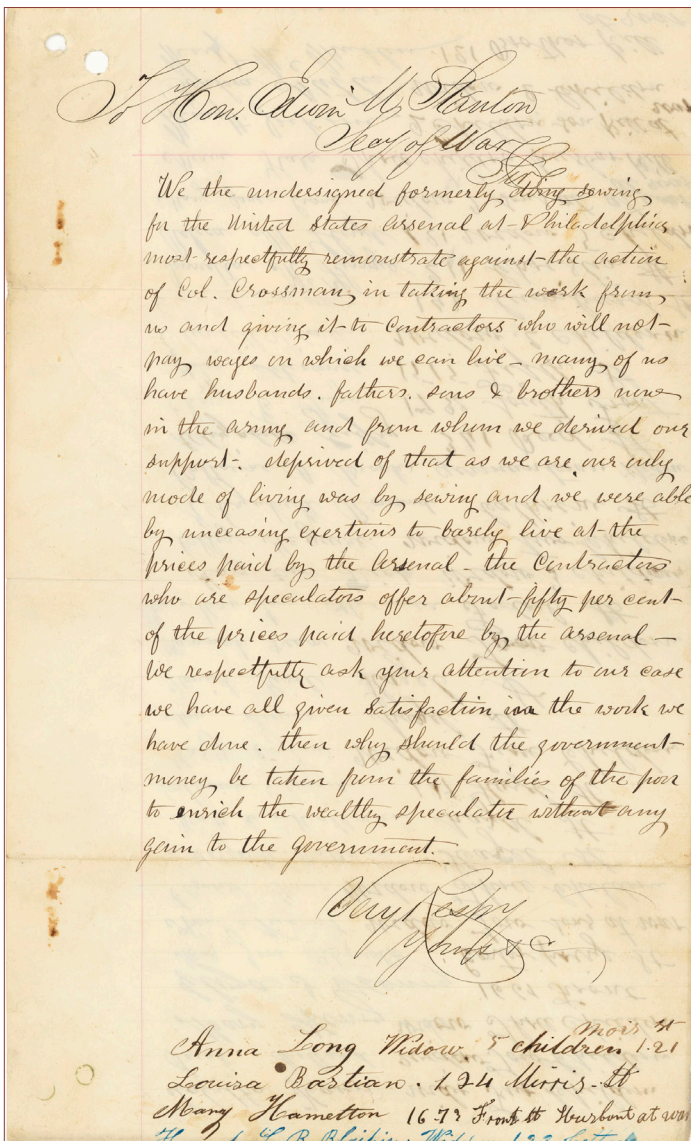 To Hon. Edwin M. Stanton
Secy of War
Sir
We the undersigned formerly doing sewing
for the United States Arsenal at Philadelphia
most respectfully remonstrate against the action
of Col. Crossman, in taking the work from
us and giving it to Contractors who will not
pay wages on which we can live - many of us
have husbands. fathers. sons & brothers now
in the army and from whom we derived our
support. deprived of that as we are our only
mode of living was by sewing and we were able
by unceasing exertions to barely live at the
prices paid by the Arsenal - the Contractors
who are speculators offer about fifty per cent
of the prices paid heretofore by the arsenal -
We respectfully ask your attention to our case
we have all given Satisfaction in the work we
have done. then why should the government
money be taken from the families of the poor
to enrich the wealthy speculator without any
gain to the government.
Very Respy
Yours &c
Anna Long Widow. 5 children 121
Moris St
Louisa Bastian. 124 Mirris. St
Mary Hamelton 1673 Front St Husbont at war